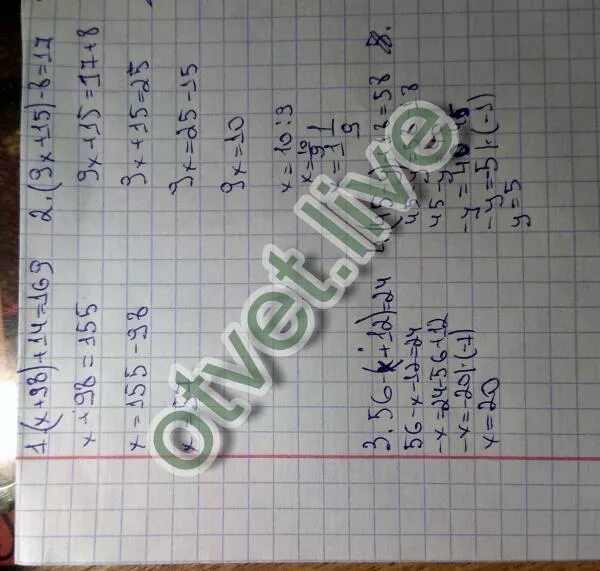 1. (x+98)+14=169
x+98=155
x=155-98
x=57
2. (9x+15)-8=17
9x+15=17+8
9x+15=25
9x=25-15
9x=10
x=10:9
x=10/9
=1 1/9
3. 56-(x+12)=24
56-x-12=24
-x=24-56+12
-x=-20|·(-1)
x=20
=58
45-y
-y=
-y=-5|·(-1)
y=5
8.
otvet.live